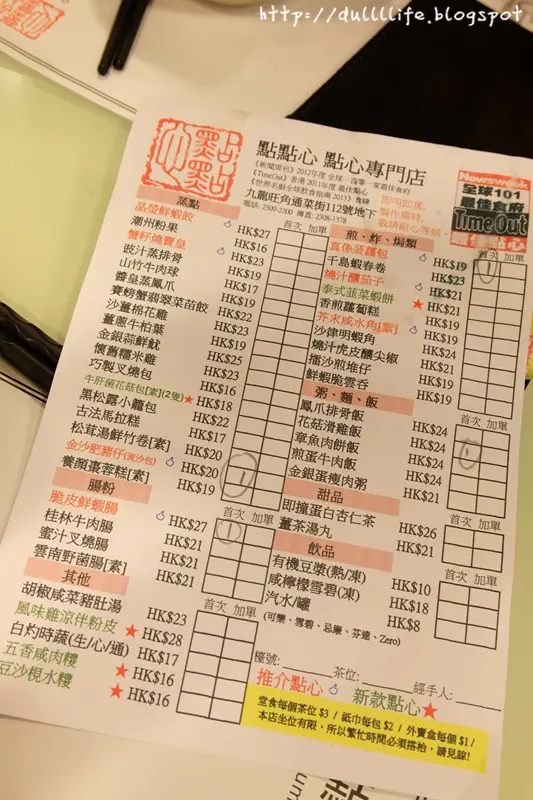 http://dullllife.blogspot.com
點點心
點點心 點心專門店
《新聞周刊》2012年度 全球一百零一家最佳食府
《TimeOut》香港 2011年度 最佳點心
《世界名廚全球飲食指南 2013》食肆
九龍旺角通菜街112號地下
電話: 2309-2300 傳真: 2308-1378
即叫即蒸,
製作需時,
敬請耐心等候。
Newsweek
全球101
最佳食府
Time Out
最佳點心
蒸點
首次 加單
晶瑩鮮蝦餃 HK$27
潮州粉果 HK$16
蟹籽燒賣皇 HK$23
豉汁蒸排骨 HK$17
山竹牛肉球 HK$17
醬皇蒸鳳爪 HK$19
賽螃蟹翡翠菜苗餃 HK$22
沙薑棉花雞 HK$23
薑蔥牛柏葉 HK$23
金銀蒜鮮魷 HK$19
懷舊糯米雞 HK$25
巧製叉燒包 HK$23
牛肝菌花菇包[素](2隻) HK$16
黑松露小籠包 ★ HK$18
古法馬拉糕 HK$22
松茸湯鮮竹卷[素] HK$17
金沙肥豬仔(流沙包) HK$20
養顏棗蓉糕[素] HK$20
HK$19
腸粉
首次 加單
脆皮鮮蝦腸 HK$27
桂林牛肉腸 HK$21
蜜汁叉燒腸 HK$21
雲南野菌腸[素] HK$21
其他
首次 加單
胡椒咸菜豬肚湯 HK$23
風味雞涼伴粉皮 ★ HK$28
白灼時蔬(生/心/通) HK$17
五香咸肉糭 ★ HK$16
豆沙梘水糭 ★ HK$16
煎、炸、焗類
首次 加單
真係菠蘿包 HK$19
千島蝦春卷 HK$23
燒汁釀茄子 HK$21
泰式韮菜蝦餅 ★ HK$21
香煎蘿蔔糕
芥末咸水角[素] HK$19
沙律明蝦角 HK$21
燒汁虎皮釀尖椒 HK$24
擂沙煎堆仔 HK$21
鮮蝦脆雲吞 HK$19
粥、麵、飯
鳳爪排骨飯 HK$24
花菇滑雞飯 HK$24
章魚肉餅飯 HK$24
煎蛋牛肉飯 HK$24
金銀蛋瘦肉粥 HK$21
甜品
即撞蛋白杏仁茶 HK$26
薑茶湯丸 HK$21
飲品
有機豆漿(熱/凍) HK$10
咸檸檬雪碧(凍) HK$18
汽水/罐 HK$8
(可樂、雪碧、忌廉、芬達、Zero)
檯號: 茶位: 經手人:
推介點心 新款點心★
堂食每個茶位 $3 / 紙巾每包 $2 / 外賣盒每個 $1 /
本店坐位有限，所以繁忙時間必須搭枱，請見諒!